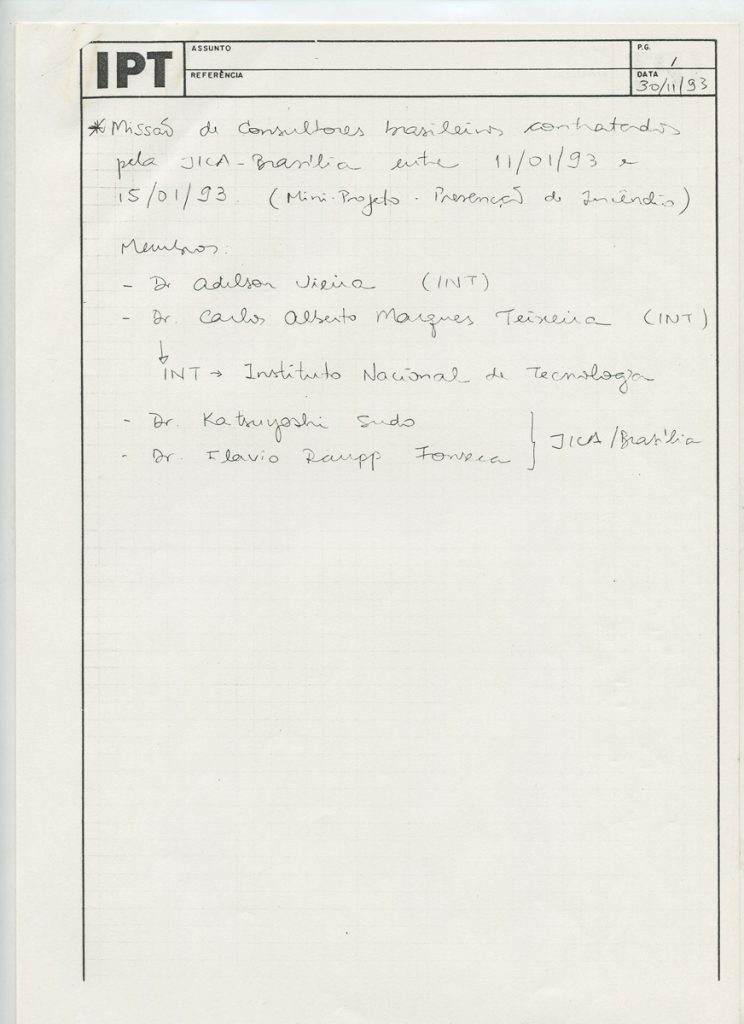 IPT
ASSUNTO
REFERÊNCIA
P.G. 1
DATA
30/11/93
* Missão de Consultores brasileiros contratados
pela JICA-Brasília entre 11/01/93 e
15/01/93. (Mini-Projeto - Prevenção de Incêndio)
Membros:
- Dr Adilson Vieira (INT)
- Dr. Carlos Alberto Marques Teixeira (INT)
↓
INT → Instituto Nacional de Tecnologia
- Dr. Katsuyoshi Sudo
- Dr. Flavio Raupp Fonseca } JICA/Brasília